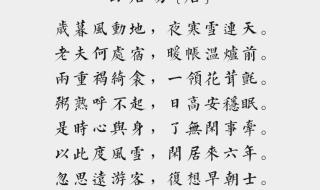 歲暮風動地，夜寒雪連天。
老夫何處宿，暖帳溫爐前。
兩重褐綺衾，一領花茸氈。
粥熟呼不起，日高安穩眠。
是時心與身，了無閑事牽。
以此度風雪，閑居來六年。
忽思遠游客，復想早朝士。